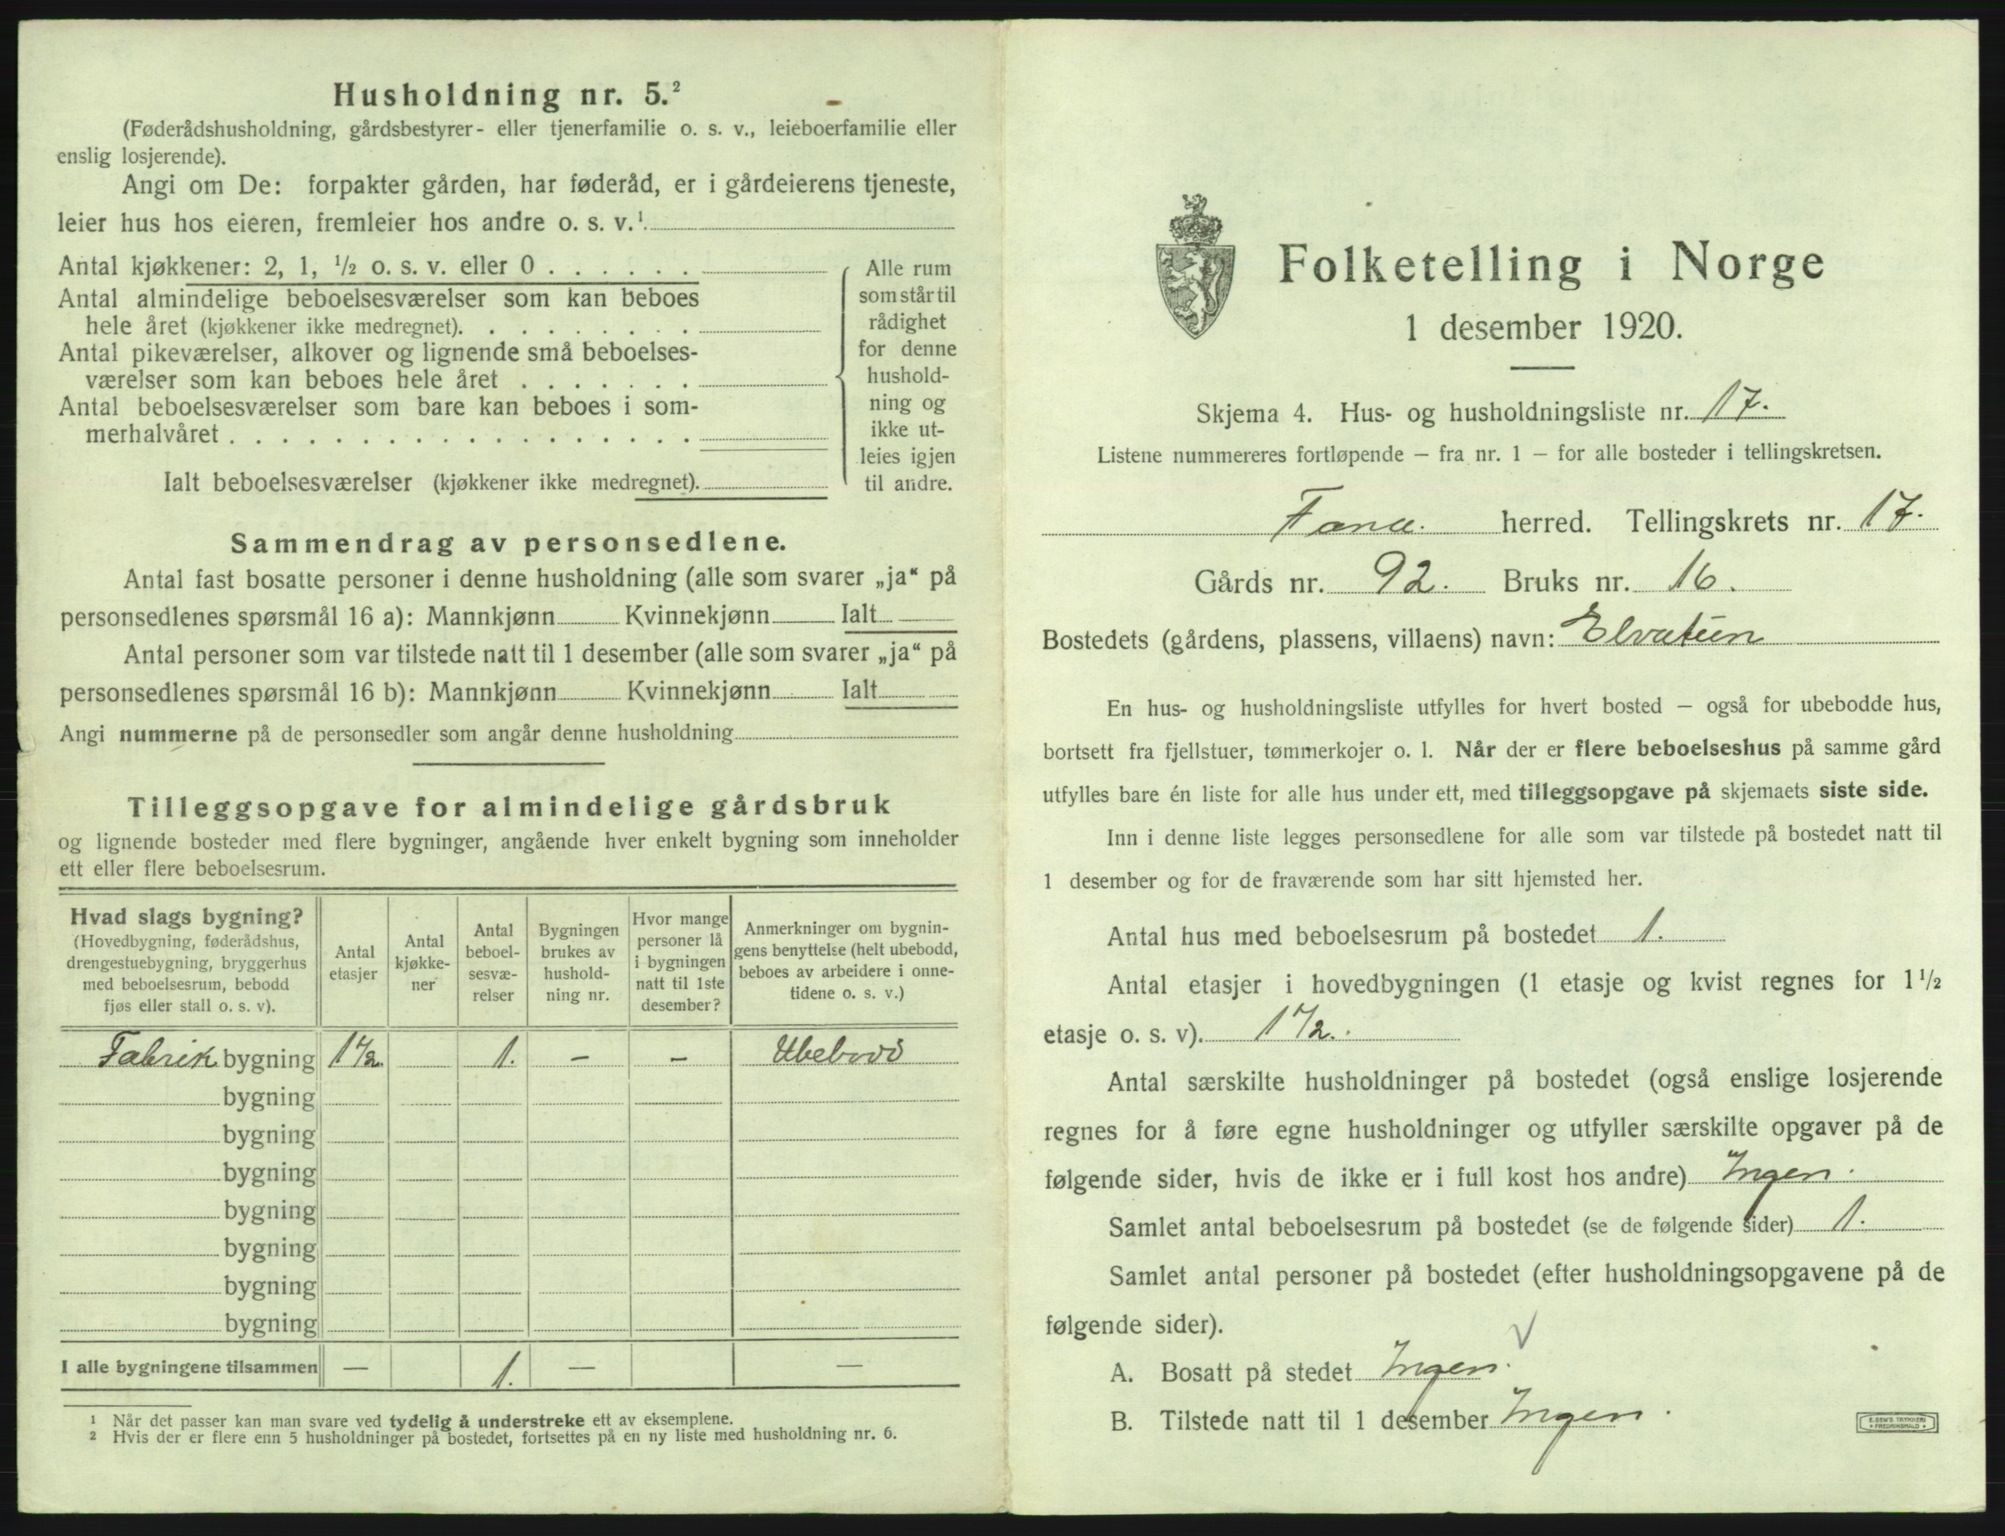 Husholdning nr. 5.²
(Føderådshusholdning, gårdsbestyrer- eller tjenerfamilie o. s. v., leieboerfamilie eller
enslig losjerende).
Angi om De: forpakter gården, har føderåd, er i gårdeierens tjeneste,
leier hus hos eieren, fremleier hos andre o. s. v.¹
Antal kjøkkener: 2, 1, ½ o. s. v. eller 0
Antal almindelige beboelsesværelser som kan beboes
hele året (kjøkkener ikke medregnet).
Antal pikeværelser, alkover og lignende små beboelses-
værelser som kan beboes hele året
Antal beboelsesværelser som bare kan beboes i som-
merhalvåret
Ialt beboelsesværelser (kjøkkener ikke medregnet).
Alle rum
som står til
rådighet
for denne
hushold-
ning og
ikke ut-
leies igjen
til andre.
Sammendrag av personsedlene.
Antal fast bosatte personer i denne husholdning (alle som svarer „ja“ på
personsedlenes spørsmål 16 a): Mannkjønn Kvinnekjønn Ialt
Antal personer som var tilstede natt til 1 desember (alle som svarer „ja“ på
personsedlenes spørsmål 16 b): Mannkjønn Kvinnekjønn Ialt
Angi nummerne på de personsedler som angår denne husholdning
Tilleggsopgave for almindelige gårdsbruk
og lignende bosteder med flere bygninger, angående hver enkelt bygning som inneholder
ett eller flere beboelsesrum.
Hvad slags bygning?
(Hovedbygning, føderådshus,
drengestuebygning, bryggerhus
med beboelsesrum, bebodd
fjøs eller stall o. s. v).
Antal
etasjer
Antal
kjøkke-
ner
Antal
beboel-
sesvæ-
relser
Bygningen
brukes av
hushold-
ning nr.
Hvor mange
personer lå
i bygningen
natt til 1ste
desember?
Anmerkninger om bygnin-
gens benyttelse (helt ubebodd,
beboes av arbeidere i onne-
tidene o. s. v.)
Fabrik bygning 1½ 1. – – Ubebodd
bygning
bygning
bygning
bygning
bygning
bygning
bygning
I alle bygningene tilsammen — 1. — —
¹ Når det passer kan man svare ved tydelig å understreke ett av eksemplene.
² Hvis der er flere enn 5 husholdninger på bostedet, fortsettes på en ny liste med husholdning nr. 6.
Folketelling i Norge
1 desember 1920.
Skjema 4. Hus- og husholdningsliste nr. 17.
Listene nummereres fortløpende – fra nr. 1 – for alle bosteder i tellingskretsen.
Fana. herred. Tellingskrets nr. 17.
Gårds nr. 92. Bruks nr. 16.
Bostedets (gårdens, plassens, villaens) navn: Elvatun
En hus- og husholdningsliste utfylles for hvert bosted – også for ubebodde hus,
bortsett fra fjellstuer, tømmerkojer o. l. Når der er flere beboelseshus på samme gård
utfylles bare én liste for alle hus under ett, med tilleggsopgave på skjemaets siste side.
Inn i denne liste legges personsedlene for alle som var tilstede på bostedet natt til
1 desember og for de fraværende som har sitt hjemsted her.
Antal hus med beboelsesrum på bostedet 1.
Antal etasjer i hovedbygningen (1 etasje og kvist regnes for 1½
etasje o. s. v). 1½.
Antal særskilte husholdninger på bostedet (også enslige losjerende
regnes for å føre egne husholdninger og utfyller særskilte opgaver på de
følgende sider, hvis de ikke er i full kost hos andre) Ingen.
Samlet antal beboelsesrum på bostedet (se de følgende sider) 1.
Samlet antal personer på bostedet (efter husholdningsopgavene på de
følgende sider).
A. Bosatt på stedet Ingen.
B. Tilstede natt til 1 desember Ingen.
E. SEM'S TRYKKERI
FREDRIKSHALD